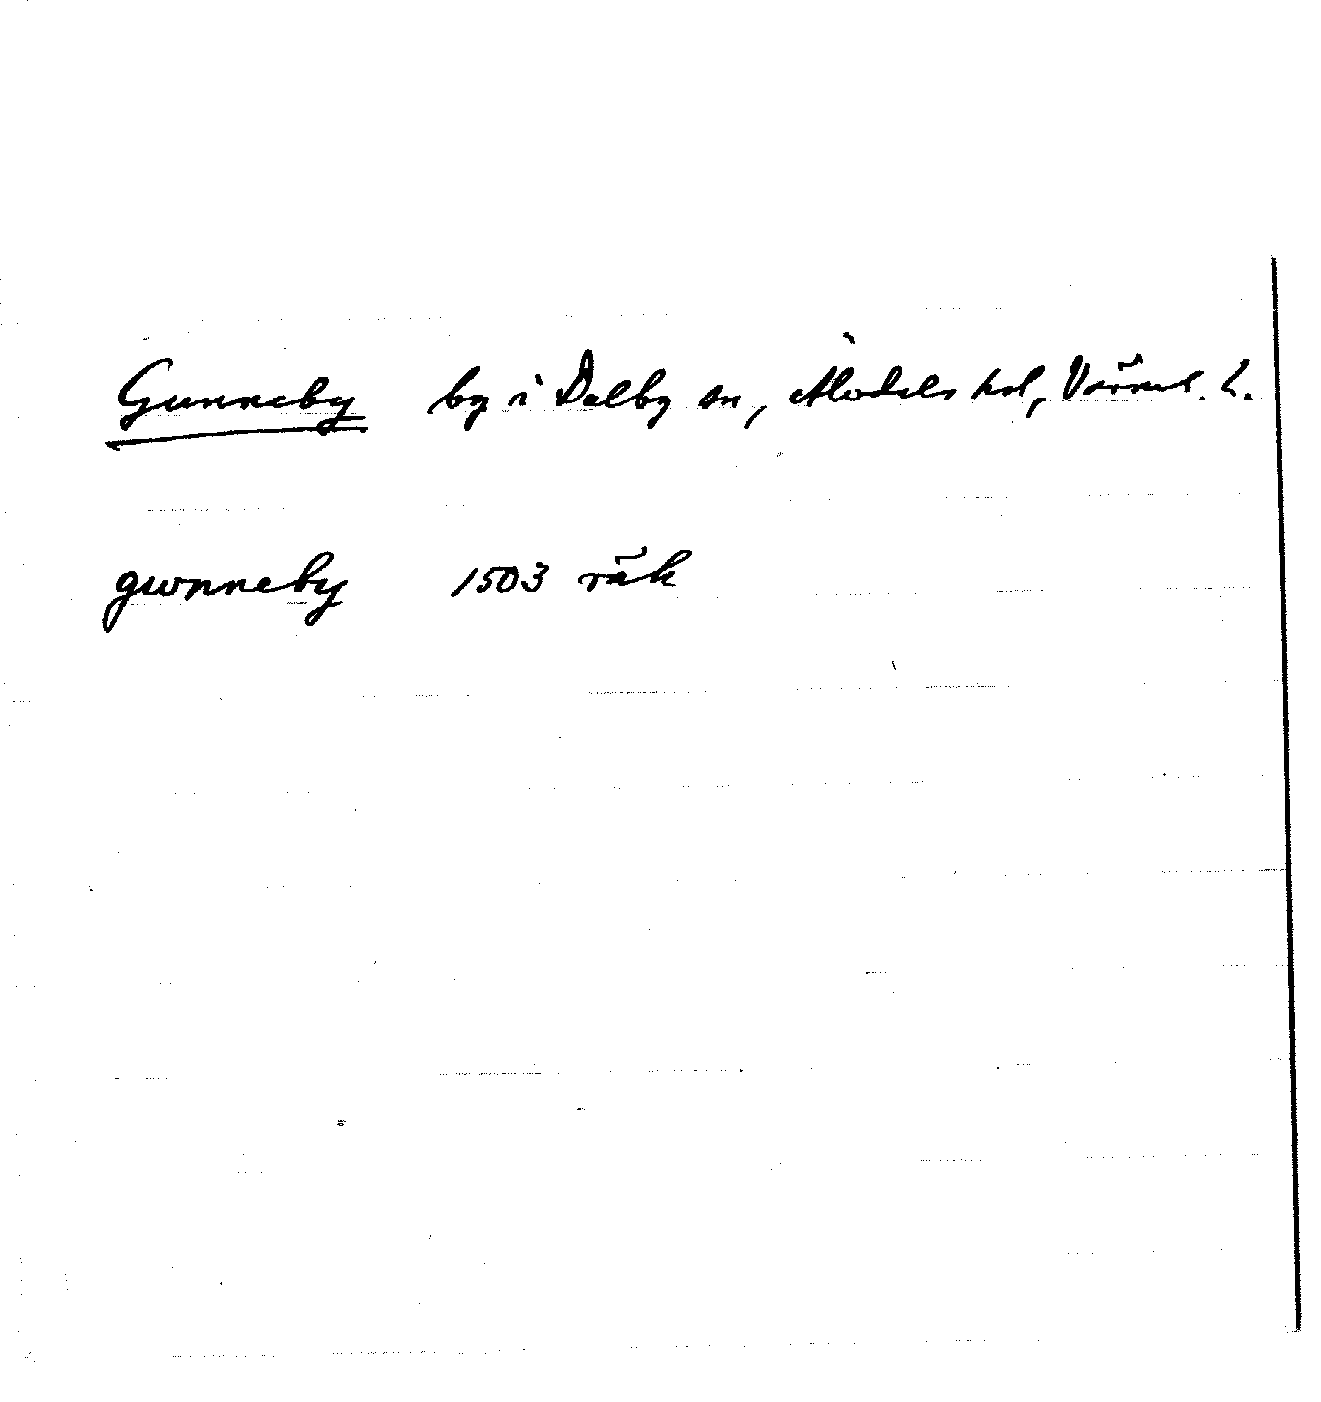 Gunneby by i Dalby sn, Älvdals hd, Värml. l.
gwnneby 1503 räk